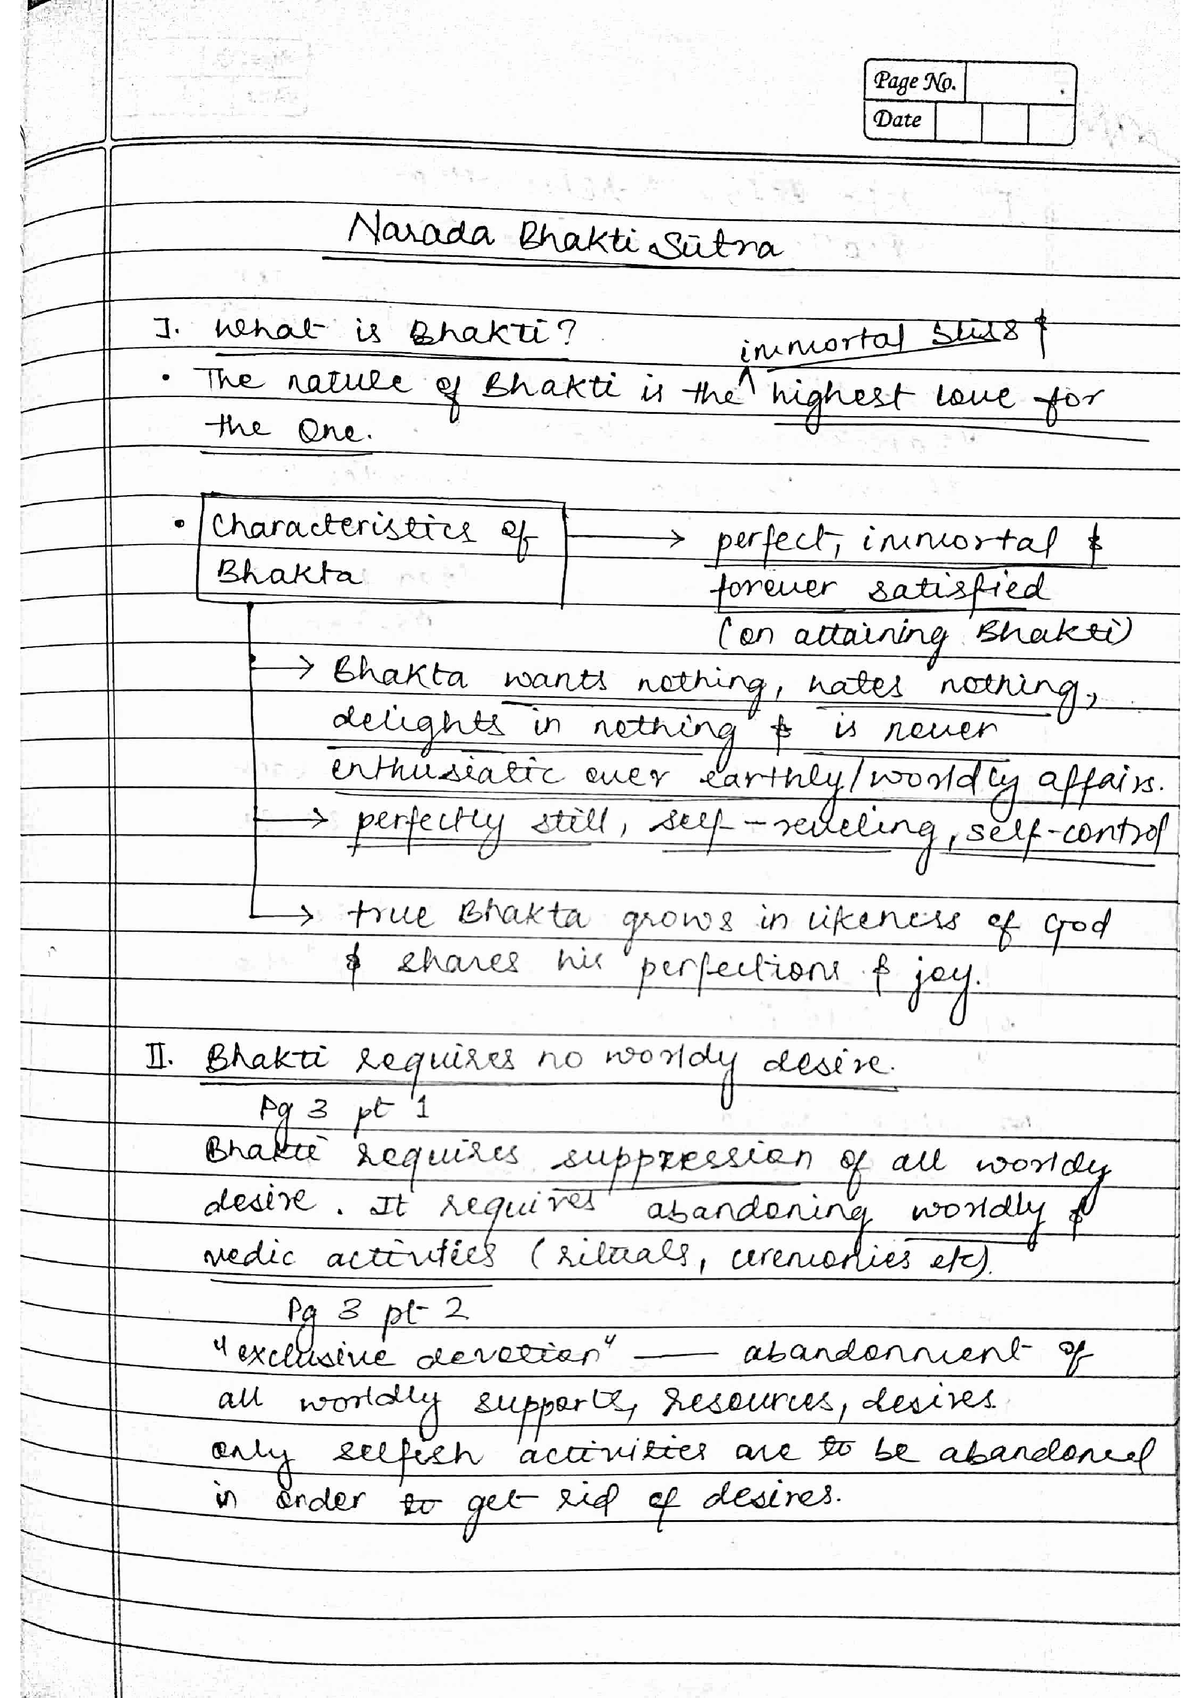 Page No.
Date
Narada Bhakti Sūtra
I. What is Bhakti?
immortal bliss &
• The nature of Bhakti is the ^ highest love for
the One.
• Characteristics of
Bhakta
→ perfect, immortal &
forever satisfied
(on attaining Bhakti)
→ Bhakta wants nothing, hates nothing,
delights in nothing & is never
enthusiatic over earthly/worldly affairs.
→ perfectly still, self-reveling, self-control
→ true Bhakta grows in likeness of God
& shares his perfections & joy.
II. Bhakti requires no worldy desire.
Pg 3 pt 1
Bhakti requires suppression of all worldy
desire. It requires abandoning worldly &
vedic activities (rituals, ceremonies etc).
Pg 3 pt 2
"exclusive devotion" — abandonment of
all worldly supports, resources, desires.
only selfish activities are to be abandoned
in order to get rid of desires.